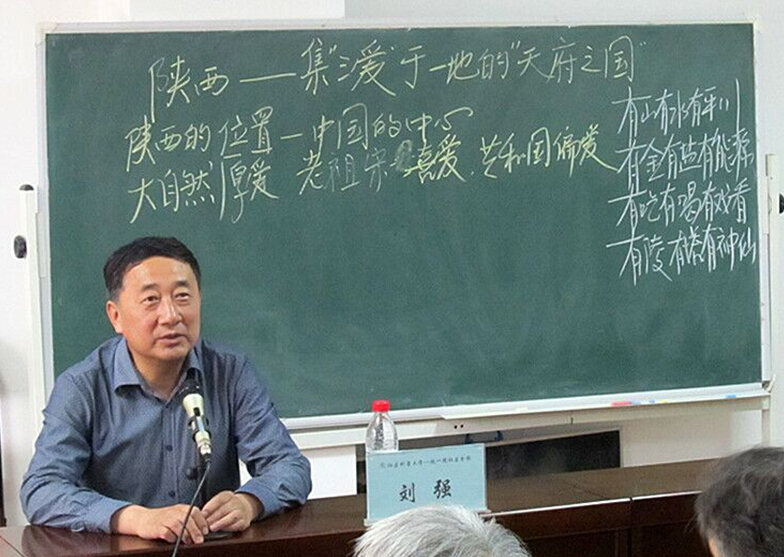 陕西——集"三爱"于一地的"天府之国"
陕西的位置—中国的中心
大自然厚爱 老祖宗喜爱.共和国偏爱
有山有水有平川
有金有盐有能源
有吃有喝有戏看
有陵有塔有神仙
刘 强